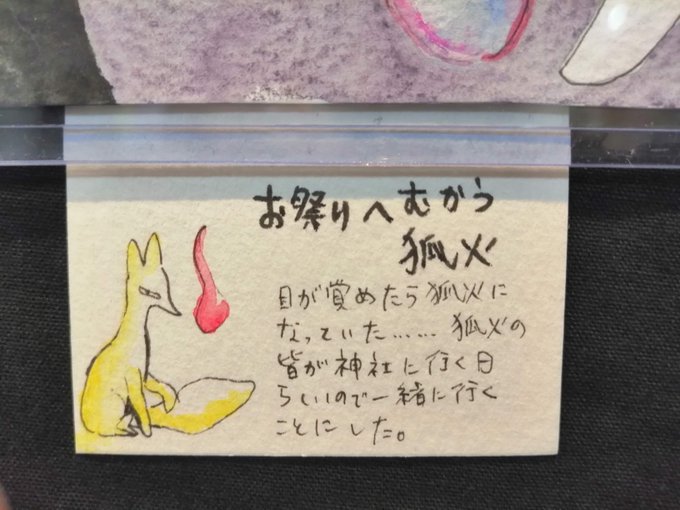 お祭りへむかう
狐火
目が覚めたら狐火に
なっていた……狐火の
皆が神社に行く日
らしいので一緒に行く
ことにした。